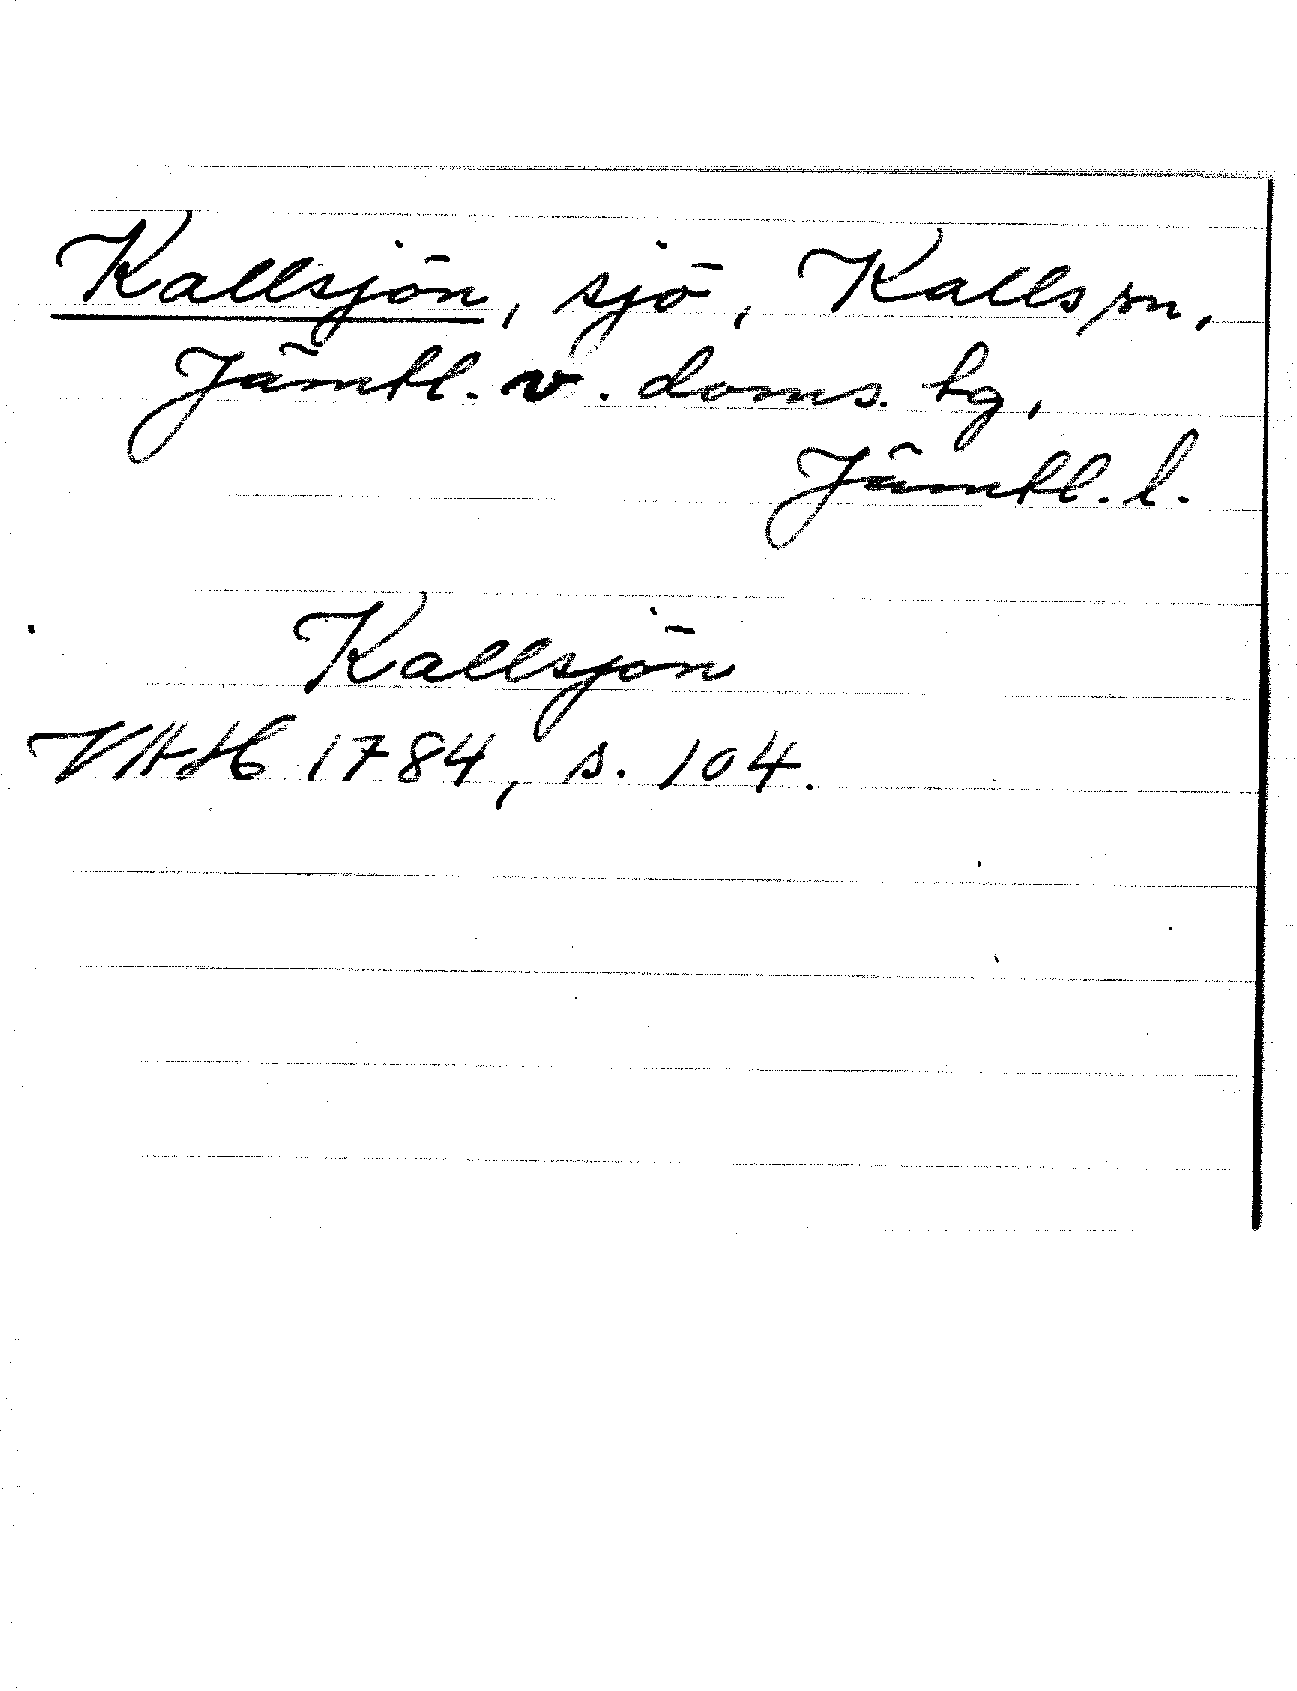 Kallsjön, sjö, Kalls sn,
Jämtl. v. doms. tg,
Jämtl. l.
Kallsjön
VAH 1784, s. 104.